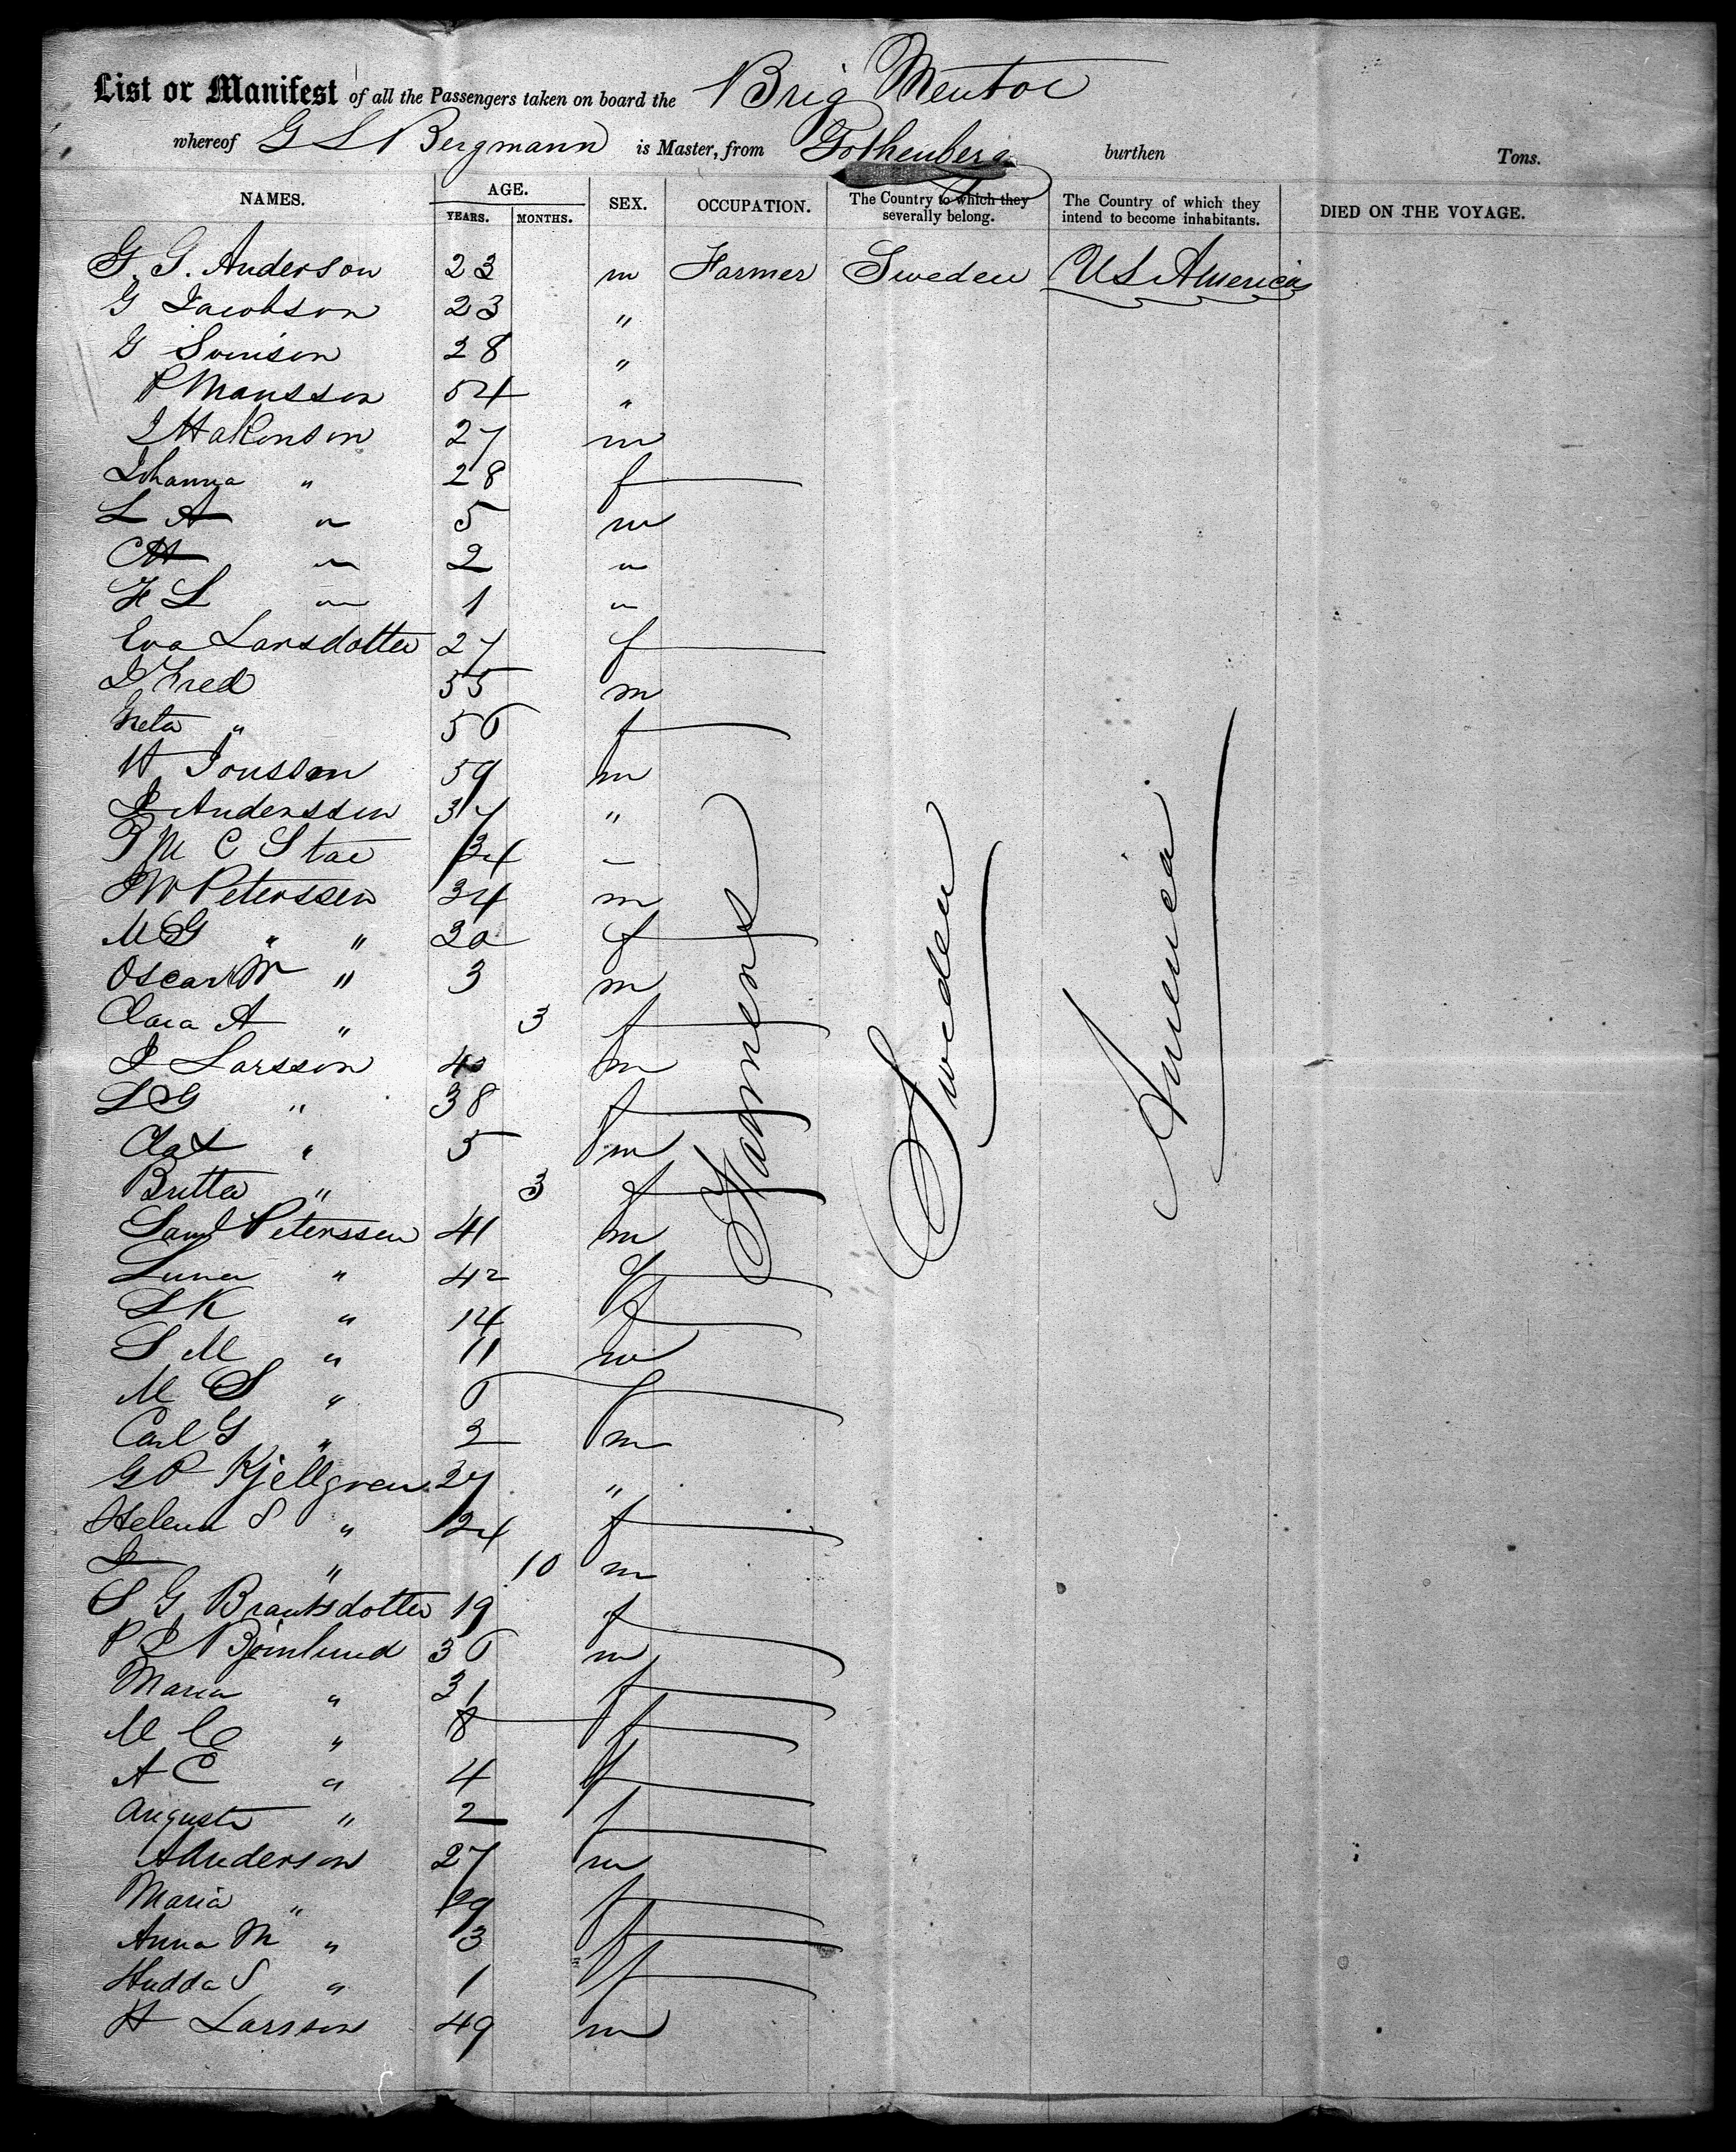 List or Manifest of all the Passengers taken on board the Brig Mentor
whereof G L Bergmann is Master, from Gothenberg burthen Tons.
NAMES. AGE. YEARS. MONTHS. SEX. OCCUPATION. The Country to which they severally belong. The Country of which they intend to become inhabitants. DIED ON THE VOYAGE.
G. G. Anderson 23 m Farmer Sweden US America
G Jacobson 23 "
G 28 "
P Mansson 54 "
J Hakonson 27 m
Johanna " 28 f
L A " 5 m
C H " 2 "
F L " 1 "
Eva Larsdotter 27 f
J Fred 55 m
Greta " 56 f
H Jonsson 59 m
J Anderssen 37 "
P M C 34
J W Peterssen 34 m
M G " " 30 f
Oscar W " 3 m
Clara A " 3 f
J Larsson 43 m
L G " 38 f
" 5 m
Britta " 3 f
Saml Peterssen 41 m
" 42 f
S K " 14 f
S M " 11 m
M S " 6 f
Carl G " 2 m
G P Kjellgren 27 "
Helena S " 24 f
J " 10 m
S G Brantsdotter 19 f
P J Bjornlund 36 m
Maria " 31 f
M C " 8 f
A C " 4 f
Augusta " 2 f
A Anderson 27 m
Maria " 29 f
Anna M " 3 f
Hedda S " 1 f
H Larsson 49 m
Farmers
Sweden
America